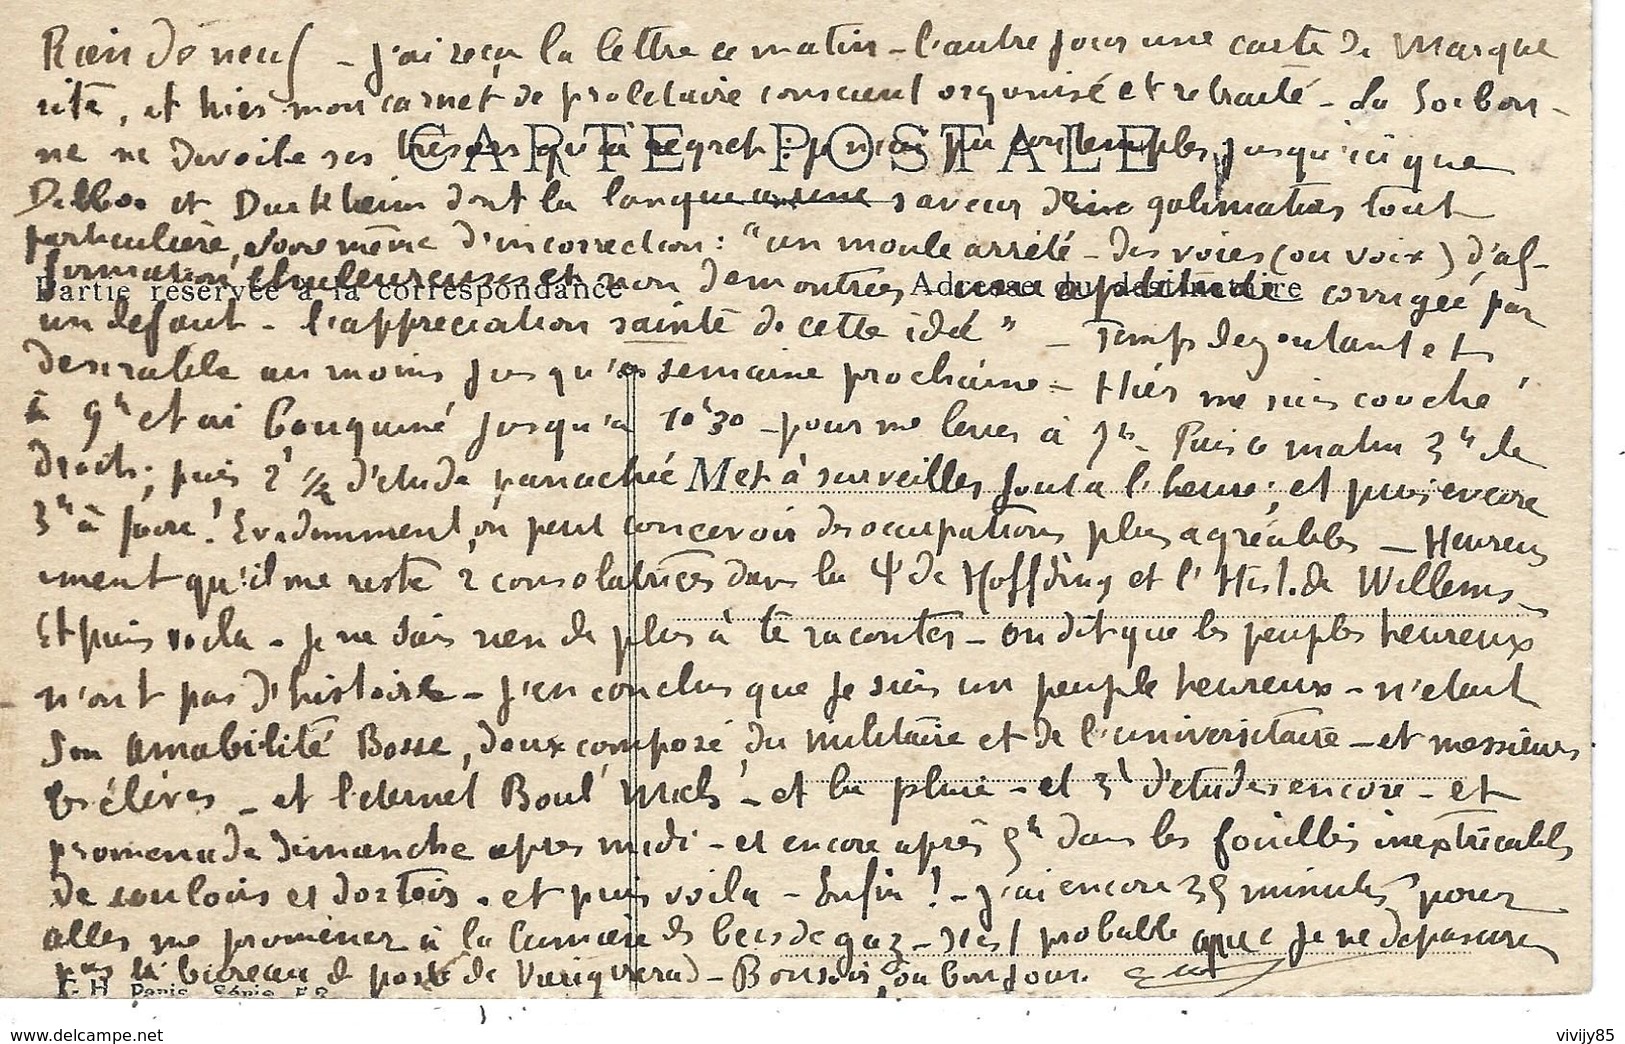 Rien de neuf - J'ai reçu la lettre ce matin - l'autre jour une carte de Margue
rite, et hier mon carnet de proletaire conscient organisé et retraité - La Sorbon-
CARTE POSTALE
ne ne devoile ses trésors qu'à regret : je n'ai pu contempler jusqu'ici que
Delbos et Durkheim dont la langue a une saveur de galimatias tout
particulière, voire même d'incorrection : "un moule arrêté - des voies (ou voix) d'af-
firmation et non demontrées une aptitude corrigée par
Partie réservée à la correspondance
Adresse du destinataire
un defaut - l'appreciation sainte de cette idée" - Temps degoutant et
desirable au moins jusqu'à semaine prochaine - Hier me suis couché
à 9h et ai bouquiné jusqu'à 10h30 - pour me lever à 7h - Puis ce matin 3h de
droit ; puis 2h 1/2 d'etude panachée et à surveiller tout à l'heure ; et puis encore
M
3h à faire ! Evidemment, on peut concevoir des occupations plus agréables - Heureus
ement qu'il me reste 2 consolatrices dans la Ψ de Hoffding et l'Hist. de Willems -
Et puis voila - Je ne sais rien de plus à te raconter - on dit que les peuples heureux
n'ont pas d'histoire - J'en conclus que je suis un peuple heureux - n'etait
Son Amabilité Bosse, doux composé du militaire et de l'universitaire - et messieurs
les élèves - et l'eternel Boul' Mich' - et la pluie - et 3h d'etudes encore - et
promenade dimanche apres midi - et encore après 5h dans les fouillis inextricables
de couloirs et dortoirs - et puis voila - Enfin ! - J'ai encore 35 minutes pour
aller me promener à la lumière des becs de gaz - Il est probable que je ne depasserai
pas le bureau de poste de Vaugirard - Bonsoir ou bonjour.
C. H Paris Série
vivijy85
www.delcampe.net